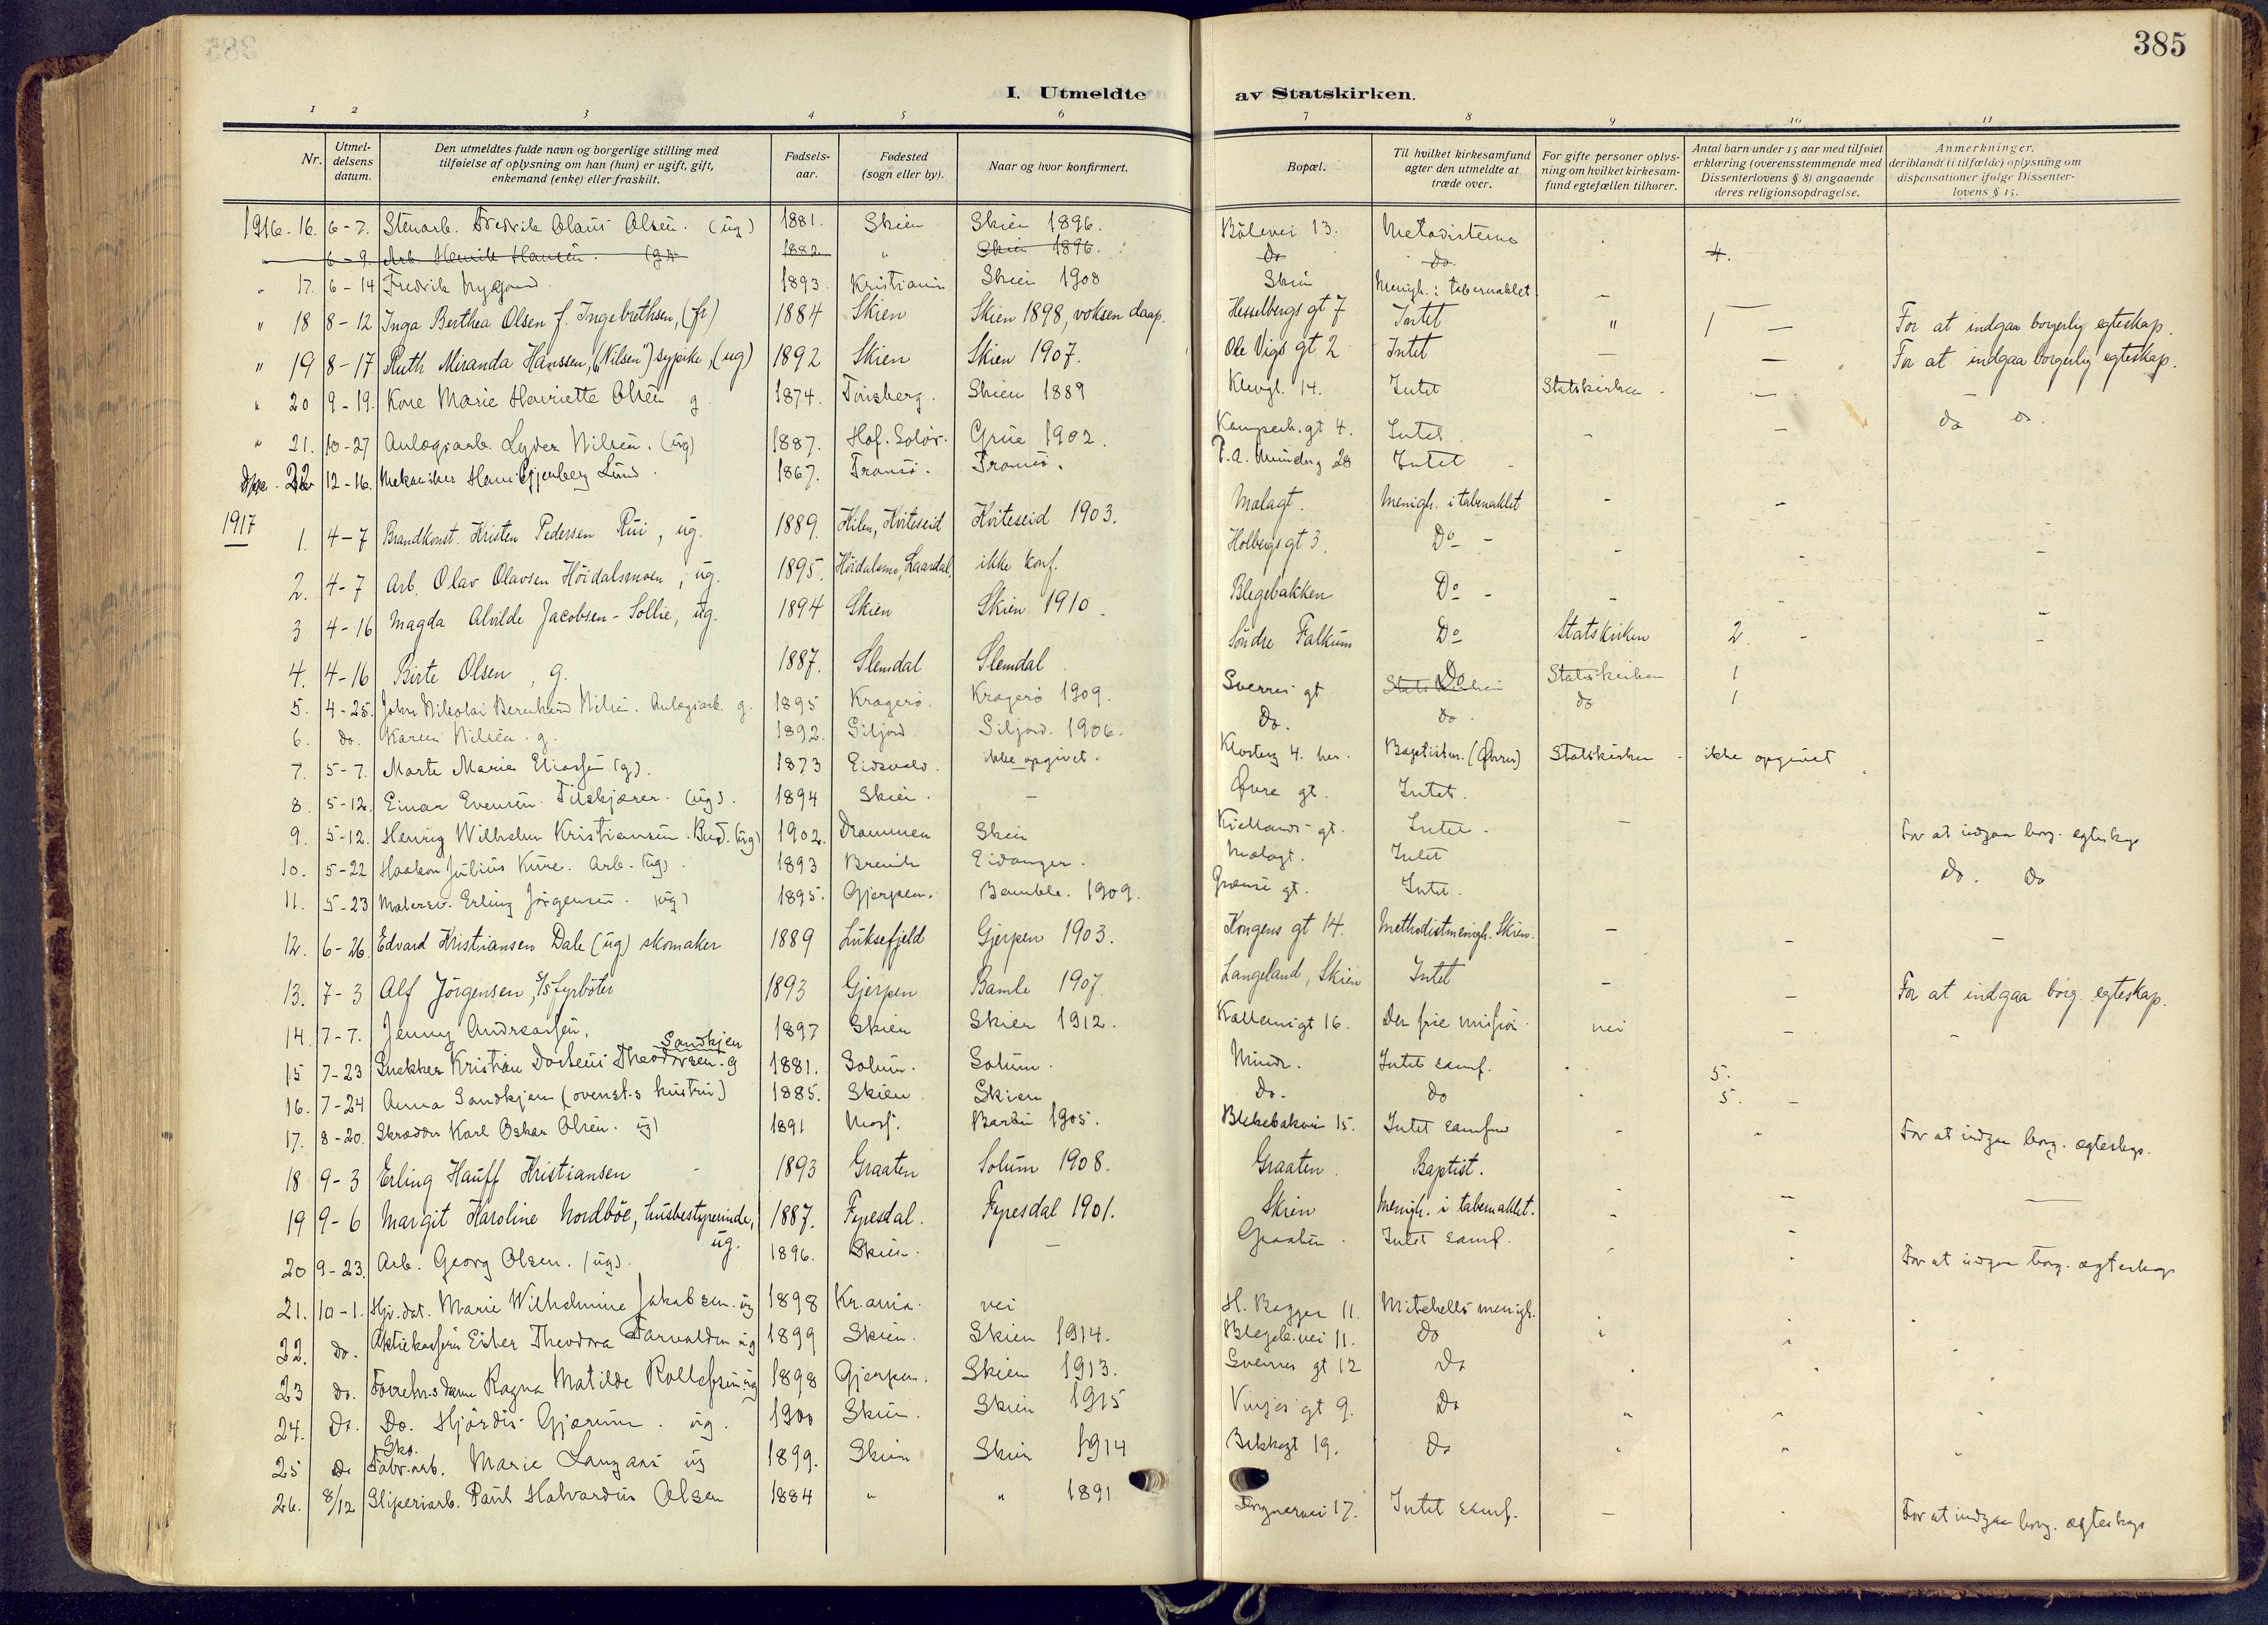 385
I. Utmeldte av Statskirken.
1 2 3 4 5 6 7 8 9 10 11
Nr. | Utmeldelsens datum. | Den utmeldtes fulde navn og borgerlige stilling med tilføielse af oplysning om han (hun) er ugift, gift, enkemand (enke) eller fraskilt. | Fødselsaar. | Fødested (sogn eller by). | Naar og hvor konfirmert. | Bopæl. | Til hvilket kirkesamfund agter den utmeldte at træde over. | For gifte personer oplysning om hvilket kirkesamfund egtefællen tilhører. | Antal barn under 15 aar med tilføiet erklæring (overensstemmende med Dissenterlovens § 8) angaaende deres religionsopdragelse. | Anmerkninger, deriblandt (i tilfælde) oplysning om dispensationer ifølge Dissenterlovens § 15.
1916. 16. 6-7. Stenarb. Fredrik Olaus Olsen. (ug) 1881. Skien Skien 1896. Bölevei 13. Metodisterne
6-9. Arb. Henrik Hansen. (g) 1882 " Skien 1896. Do do. 4.
" 17. 6-14 Fredrik Nygaard 1893. Kristiania Skien 1908 Skien Menigh. i tabernaklet –
" 18 8-12 Inga Berthea Olsen f. Ingebrethsen, (fr) 1884 Skien Skien 1898, voksen daap. Hesselbergs gt 7 Intet " 1 – For at indgaa borgerlig egteskap.
" 19 8-17 Ruth Miranda Hanssen, ("Nilsen") sypike, (ug) 1892 Skien Skien 1907. Ole Vigs gt 2 Intet – – For at indgaa borgerlig egteskap.
" 20 9-19. Kone Marie Henriette Olsen g 1874. Tönsberg. Skien 1889 Klevgt. 14. Intet Statskirken – do do.
" 21. 10-27 Anlægsarb. Lyder Nilsen. (ug) 1887. Hof. Solör. Grue 1902. Kamperh. gt 4. Intet. – –
22 12-16. Mekaniker Hans Lund. 1867. Tromsö. Tromsö. P.A. Munds g 28 Intet –
1917
1. 4-7 Brandkonst. Kristen Pedersen Rui, ug. 1889. Hilen, Kviteseid Kviteseid 1903. Mælagt. Menigh. i tabernaklet – –
2. 4-7 Arb. Olav Olavsen Höidalsmoen, ug. 1895. Höidalsmo, Laardal. ikke konf. Holbergs gt 3. Do – – – –
3 4-16 Magda Alvilde Jacobsen-Sollie, ug. 1894 Skien Skien 1910. Blegebakken Do – – – –
4. 4-16 Birte Olsen, g. 1887. Slemdal Slemdal Söndre Falkum Do Statskirken 2 – –
5. 4-25. John Nikolai Bernhard Nilsen. Anlægsarb. g. 1895 Kragerö. Kragerö 1909. Sverres gt Statskirken Do Statskirken 1
6. do. Karen Nilsen. g. 1892. Siljord Siljord. 1906. Do. do. do 1
7. 5-7. Marte Marie Eliassen (g). 1873 Eidsvold. ikke opgivet. Klosterg 4. her. Baptister. (Øvrer) Statskirken ikke opgivet
8. 5-12. Einar Evensen. Tilskjærer. (ug). 1894 Skien. – Övre gt. Intet.
9. 5-12. Henrig Wilhelm Kristiansen. Bud. (ug) 1902. Drammen Skien Kiellands gt. Intet. – For at indgaa borg. egteskap
10. 5-22 Haakon Julius Kure. Arb. (ug). 1893 Brevik Eidanger. Mælagt. Intet Do. Do
11. 5-23 Malersv. Erling Jörgensen. (ug) 1895. Gjerpen. Bamble. 1909. Grænse gt. Intet.
12. 6-26. Edvard Kristiansen Dale (ug) skomaker 1889 Luksefjeld Gjerpen 1903. Kongens gt 14. Methodistmenigh. Skien. – – –
13. 7-3 Alf Jörgensen, s/s fyrböter 1893 Gjerpen Bamle 1907. Langeland, Skien Intet – – For at indgaa borg. egteskap.
14. 7-7. Jenny Andreassen. 1897 Skien Skien 1912. gt 16. Den frie mission nei – –
15 7-23 Snekker Kristian Dorteus Theodorsen. g Sandkjen 1881. Solum. Solum. Intet samf. 5.
16. 7-24 Anna Sandkjen (ovenst.s hustru) 1885. Skien. Skien Do. do 5. –
17. 8-20. Skrædder Karl Oskar Olsen. ug) 1891 Moss. Barbu 1905. 15. Intet samfund – For at indgaa borg. ægteskap.
18 9-3 Erling Hauff Kristiansen 1893 Graaten Solum 1908. Graaten. Baptist. – – –
19 9-6 Margit Karoline Nordböe, husbestyrerinde, ug. 1887. Fyresdal. Fyresdal 1901. Skien Menigh. i tabernaklet. – –
20 9-23. Arb. Georg Olsen. (ug). 1896. Skien. – Graaten. Intet samf. For at indgaa borg. ægteskap
21. 10-1. Hjv. dat. Marie Wilhelmine Jakobsen. ug 1898 Kr.ania. nei H. Bagger 11. Mitchells menigh.
22. do. Ester Theodora Torvalden ug 1899 Skien. Skien 1914. Blegeb.vei 11. Do
23 do. Forretn.s dame Ragna Matilde Rollefsen ug 1898 Gjerpen. Skien 1913. Sverres gt 12 Do
24. Do. Do. Hjördis Gjærum. ug. 1900 Skien. Skien 1915 Vinjes gt 9. Do
25 Do Sko. Fabr.arb. Marie Langaas ug 1899. Skien Skien 1914 Bekkegt 19. Do
26. 8/12 Sliperiarb. Paul Halvardus Olsen 1884 " " 1891 17. Intet samf. – For at indgaa borg. ægteskap